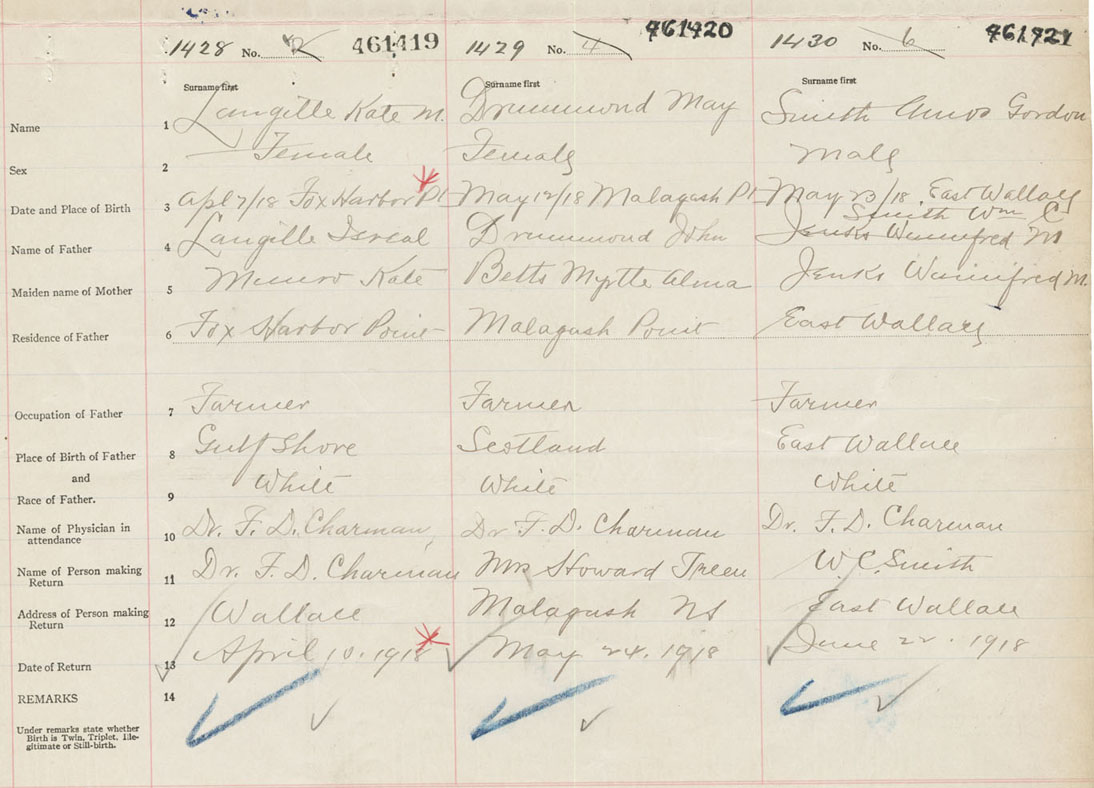 1428 No. 2 461419 1429 No. 4 461420 1430 No. 6 461421
Surname first Surname first Surname first
Name 1 Langille Kate M. Drummond May Smith Amos Gordon
Sex 2 Female Female Male
Date and Place of Birth 3 Apl 7/18 Fox Harbor Pt May 12/18 Malagash Pt May 23/18. East Wallace
Smith Wm C
Name of Father 4 Langille Isreal Drummond John Jenks Winnifred M
Maiden name of Mother 5 Munro Kate Betts Myrtle Alma Jenks Winnifred M.
Residence of Father 6 Fox Harbor Point Malagash Point East Wallace
Occupation of Father 7 Farmer Farmer Farmer
Place of Birth of Father 8 Gulf Shore Scotland East Wallace
and
Race of Father. 9 White White White
Name of Physician in
attendance 10 Dr. F. D. Charman, Dr F. D. Charman Dr. F. D. Charman
Name of Person making
Return 11 Dr. F. D. Charman Mrs Howard Treen W. C. Smith
Address of Person making
Return 12 Wallace Malagash NS East Wallace
Date of Return 13 April 10. 1918 May 24. 1918 June 22. 1918
REMARKS 14
Under remarks state whether
Birth is Twin, Triplet, Ille-
gitimate or Still-birth.